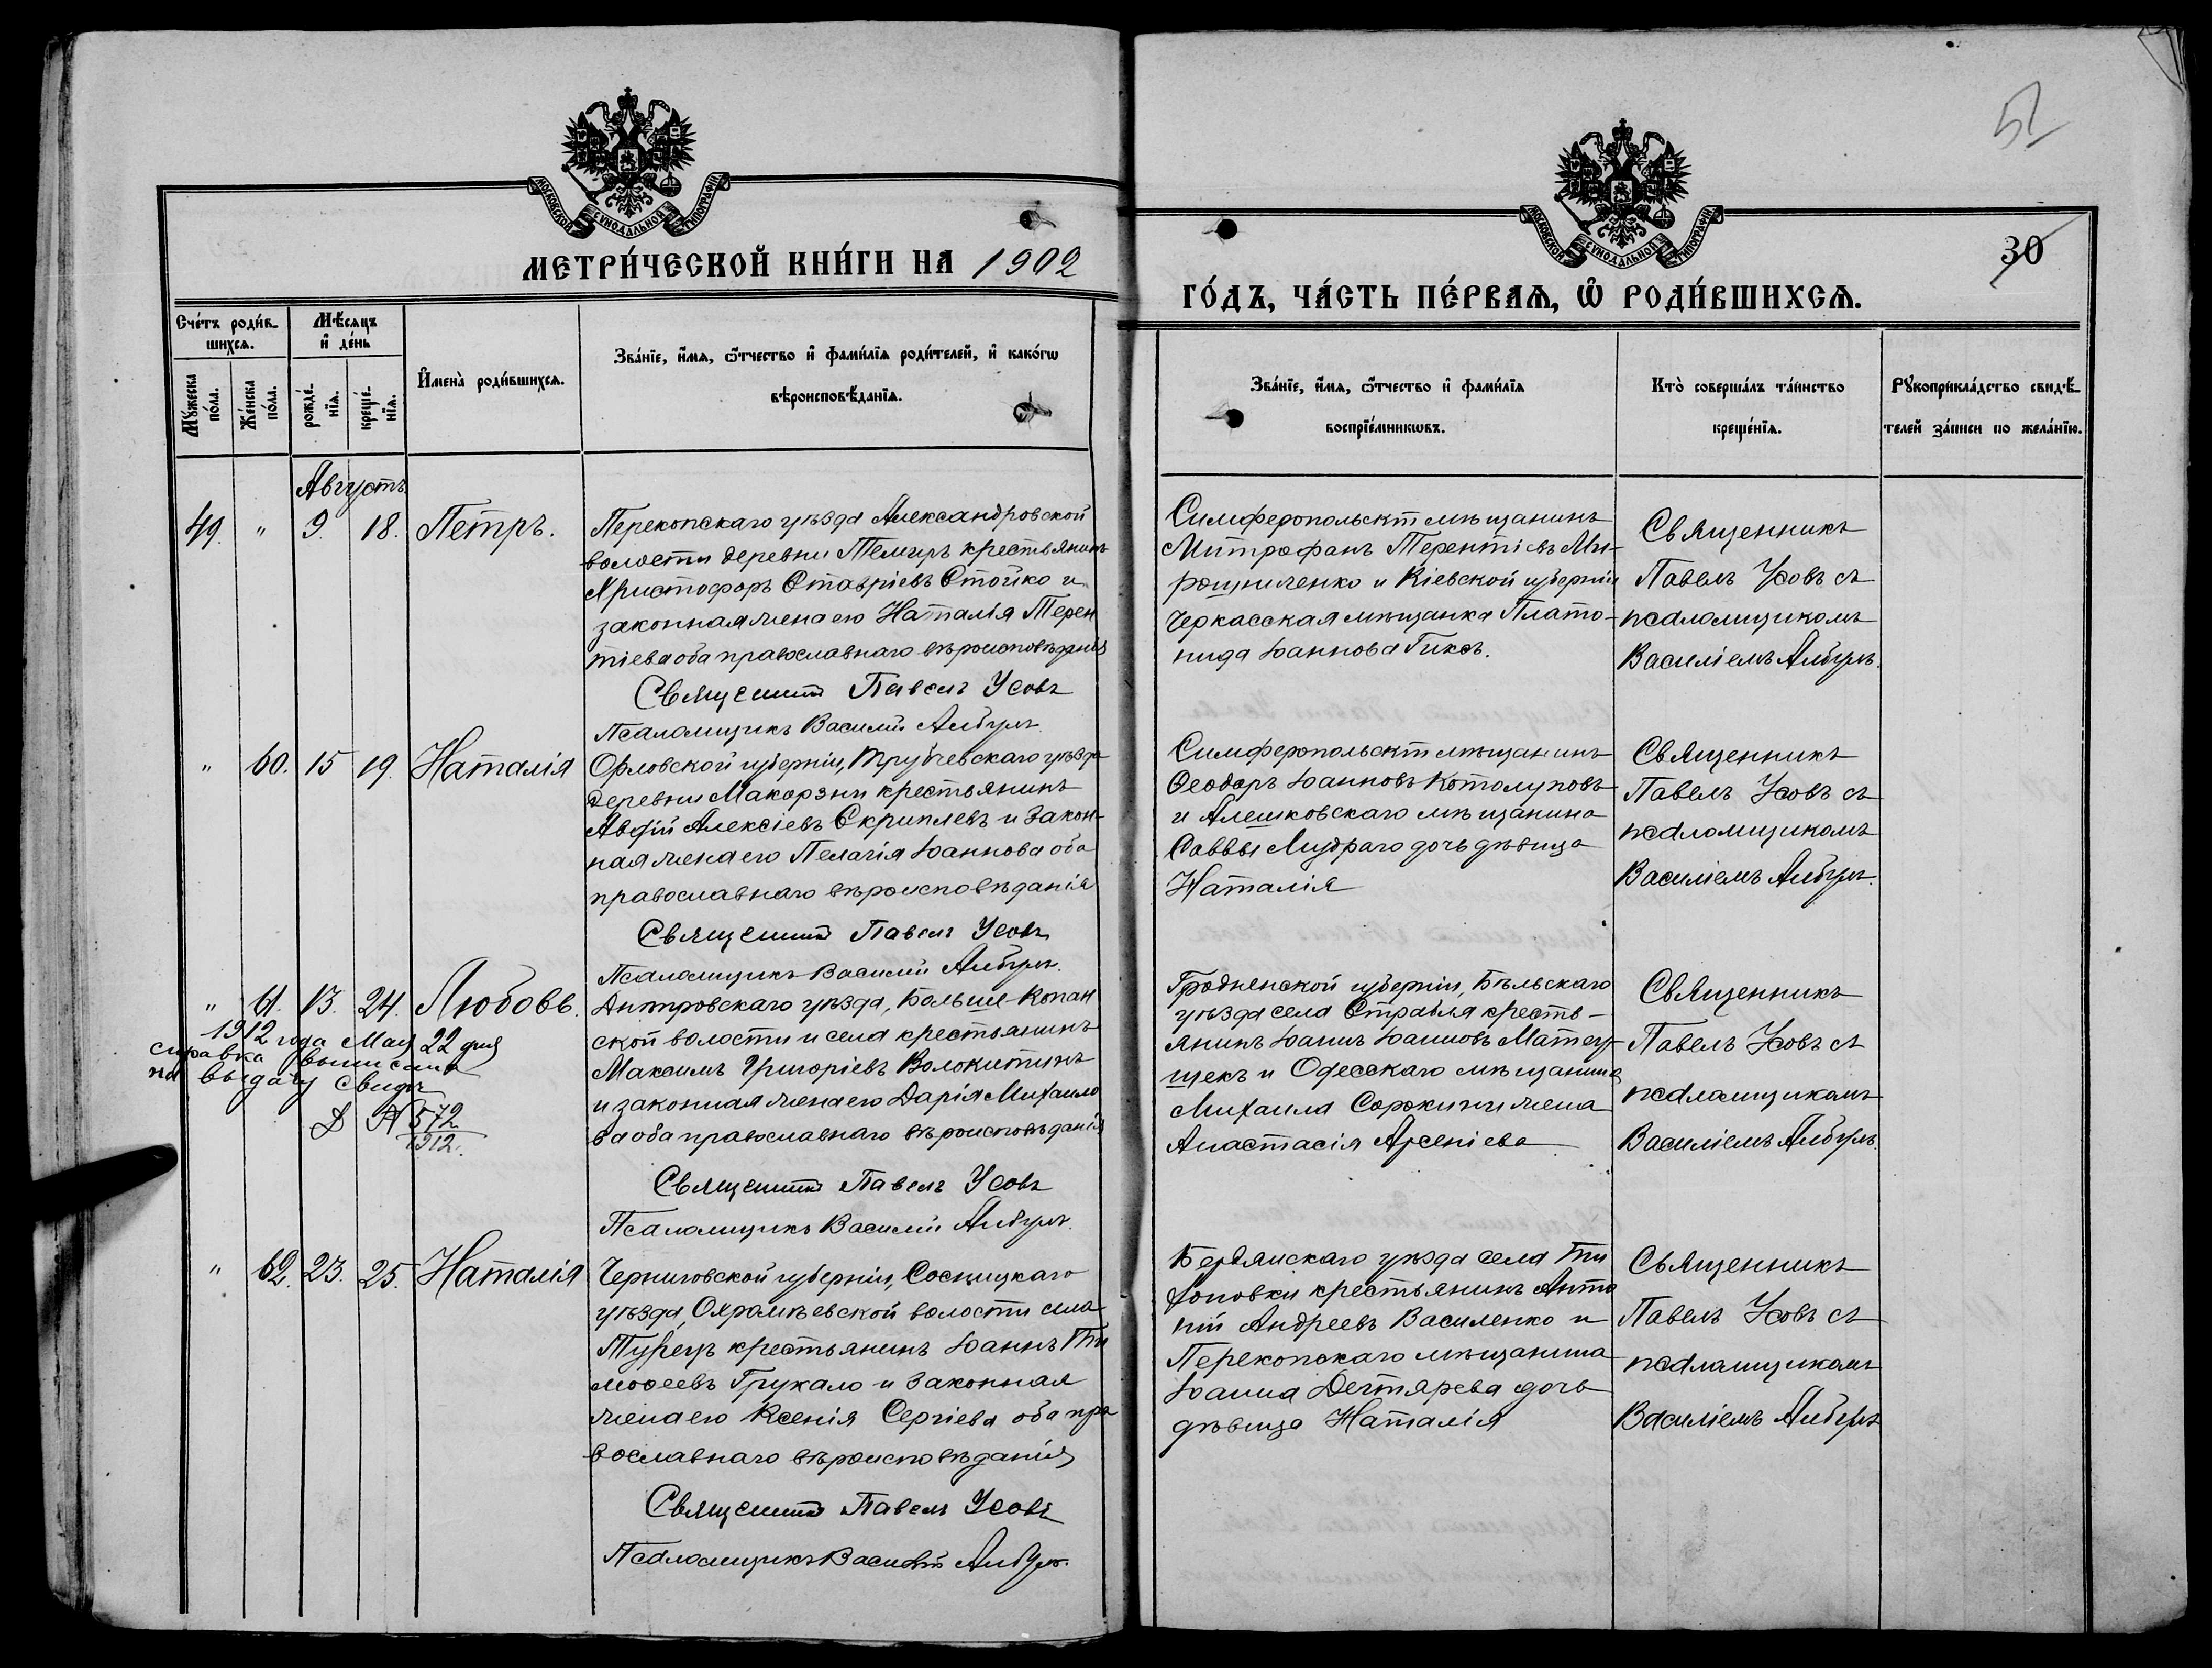 52
30
МОСКОВСКОЙ СѴНОДАЛЬНОЙ ТИПОГРАФІИ
МЕТРИ́ЧЕСКОЙ КНИ́ГИ НА 1902
МОСКОВСКОЙ СѴНОДАЛЬНОЙ ТИПОГРАФІИ
ГО́ДЪ, ЧА́СТЬ ПЕ́РВАѦ, Ѡ РОДИ́ВШИХСѦ.
Сче́тъ роди́в-
шихсѧ.
Мѣ́сѧцъ
и҆ де́нь
Мꙋ́жеска
по́ла.
Же́нска
по́ла.
рожде́-
нїѧ.
креще́-
нїѧ.
И҆мена̀ роди́вшихсѧ.
Зва́нїе, и҆́мѧ, ѻ҆́тчество и҆ фами́лїѧ роди́телей, и҆ како́гѡ
вѣроисповѣ́данїѧ.
Зва́нїе, и҆́мѧ, ѻ҆́тчество и҆ фами́лїѧ
воспрїе́мникѡвъ.
Кто̀ соверша́лъ та́инство
креще́нїѧ.
Рꙋкоприкла́дство свидѣ́-
телей за́писи по жела́нїю.
Августъ
49. " 9. 18. Петръ.
Перекопскаго уѣзда Александровской
волости деревни Темиръ крестьянинъ
Христофоръ Ставріевъ Стойко и
законная жена его Наталія Терен
тіева оба православнаго вѣроисповѣданія
Священникъ Павелъ Усовъ
Псаломщикъ Василій
Симферопольскій мѣщанинъ
Митрофанъ Терентіевъ Ми-
рошниченко и Кіевской губерніи
Черкасская мѣщанка Плато-
нида Іаннова Гиксъ.
Священникъ
Павелъ Усовъ съ
псаломщикомъ
Василіемъ
" 60. 15 19. Наталія
Орловской губерніи, Трубчевскаго уѣзда
деревни Макорзни крестьянинъ
Авдій Алексіевъ Скриплевъ и закон-
ная жена его Пелагія Іаннова оба
православнаго вѣроисповѣданія
Священникъ Павелъ Усовъ
Псаломщикъ Василій
Симферопольскій мѣщанинъ
Ѳеодоръ Іанновъ Котолуповъ
и Алешковскаго мѣщанина
Саввы Мудраго дочь дѣвица
Наталія
Священникъ
Павелъ Усовъ съ
псаломщикомъ
Василіемъ
" 61. 13. 24. Любовь.
1912 года Мая 22 дня
справка выписана
на выдачу свидѣ
Д № 572
1912.
Днѣпровскаго уѣзда, Больше-Копан
ской волости и села крестьянинъ
Максимъ Григоріевъ Волокитинъ
и законная жена его Дарія Михаило
ва оба православнаго вѣроисповѣданія
Священникъ Павелъ Усовъ
Псаломщикъ Василій
Гродненской губерніи, Бѣльскаго
уѣзда села Страбля кресть-
янинъ Іаннъ Іанновъ Матеу-
щекъ и Одесскаго мѣщанина
Михаила Сорокини жена
Анастасія Арсеніева
Священникъ
Павелъ Усовъ съ
псаломщикомъ
Василіемъ
" 62. 23. 25. Наталія
Черниговской губерніи, Сосницкаго
уѣзда, волости села
Турецъ крестьянинъ Іаннъ Ти
моѳеевъ Грукало и законная
жена его Ксенія Сергіева оба пра
вославнаго вѣроисповѣданія
Священникъ Павелъ Усовъ
Псаломщикъ Василій
Бердянскаго уѣзда села Ти
хоновки крестьянинъ Анто
ній Андреевъ Василенко и
Перекопскаго мѣщанина
Іанна Дегтярева дочь
дѣвица Наталія
Священникъ
Павелъ Усовъ съ
псаломщикомъ
Василіемъ